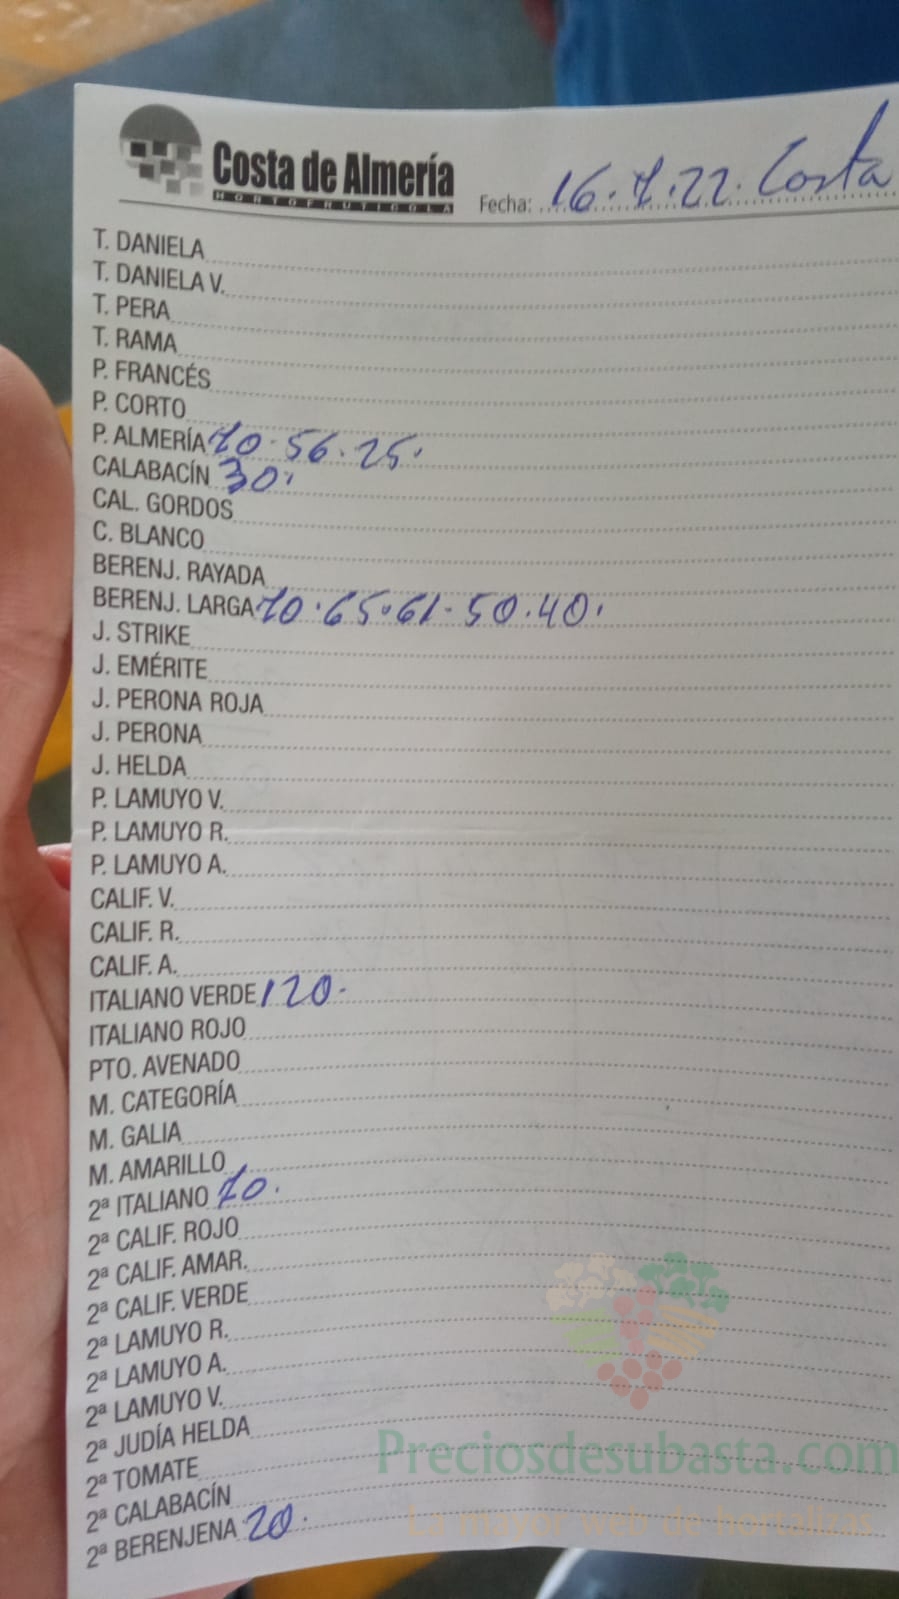 Costa de Almería
HORTOFRUTICOLA
Fecha: 16.7.22. Costa
T. DANIELA
T. DANIELA V.
T. PERA
T. RAMA
P. FRANCÉS
P. CORTO
P. ALMERÍA 70.56.25.
CALABACÍN 30.
CAL. GORDOS
C. BLANCO
BERENJ. RAYADA
BERENJ. LARGA 70.65.61.50.40.
J. STRIKE
J. EMÉRITE
J. PERONA ROJA
J. PERONA
J. HELDA
P. LAMUYO V.
P. LAMUYO R.
P. LAMUYO A.
CALIF. V.
CALIF. R.
CALIF. A.
ITALIANO VERDE 120.
ITALIANO ROJO
PTO. AVENADO
M. CATEGORÍA
M. GALIA
M. AMARILLO
2ª ITALIANO 70.
2ª CALIF. ROJO
2ª CALIF. AMAR.
2ª CALIF. VERDE
2ª LAMUYO R.
2ª LAMUYO A.
2ª LAMUYO V.
2ª JUDÍA HELDA
2ª TOMATE
2ª CALABACÍN
2ª BERENJENA 20.
Preciosdesubasta.com
La mayor web de hortalizas